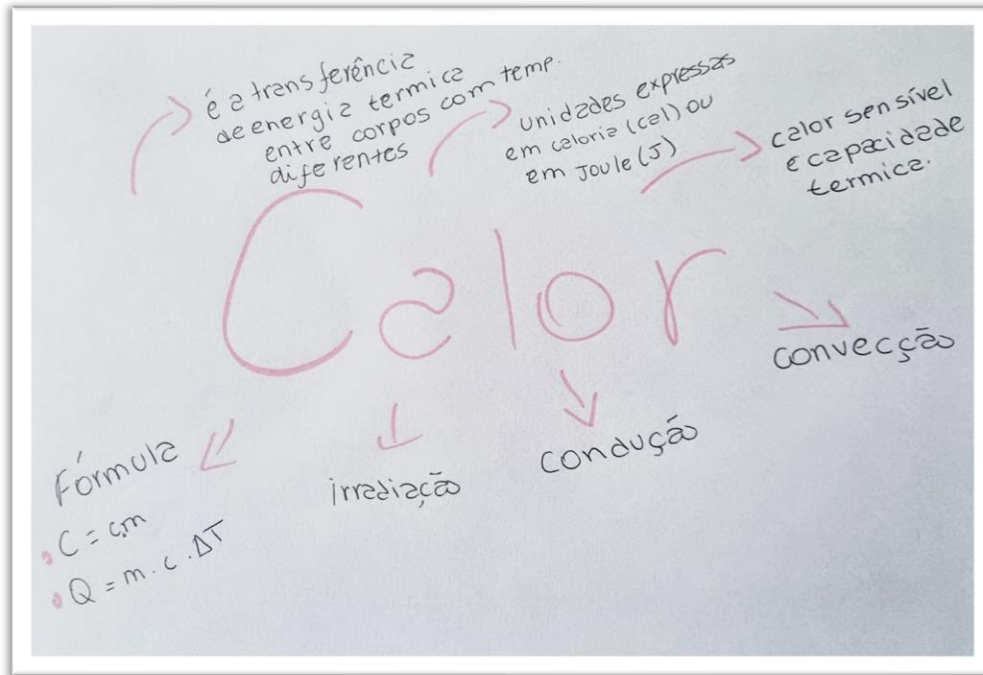 é a transferência
de energia termica
entre corpos com temp.
diferentes
unidades expressas
em caloria (cal) ou
em Joule (J)
calor sensível
e capacidade
termica.
Calor
convecção
condução
irradiação
Fórmula
C = c.m
Q = m . c . ΔT